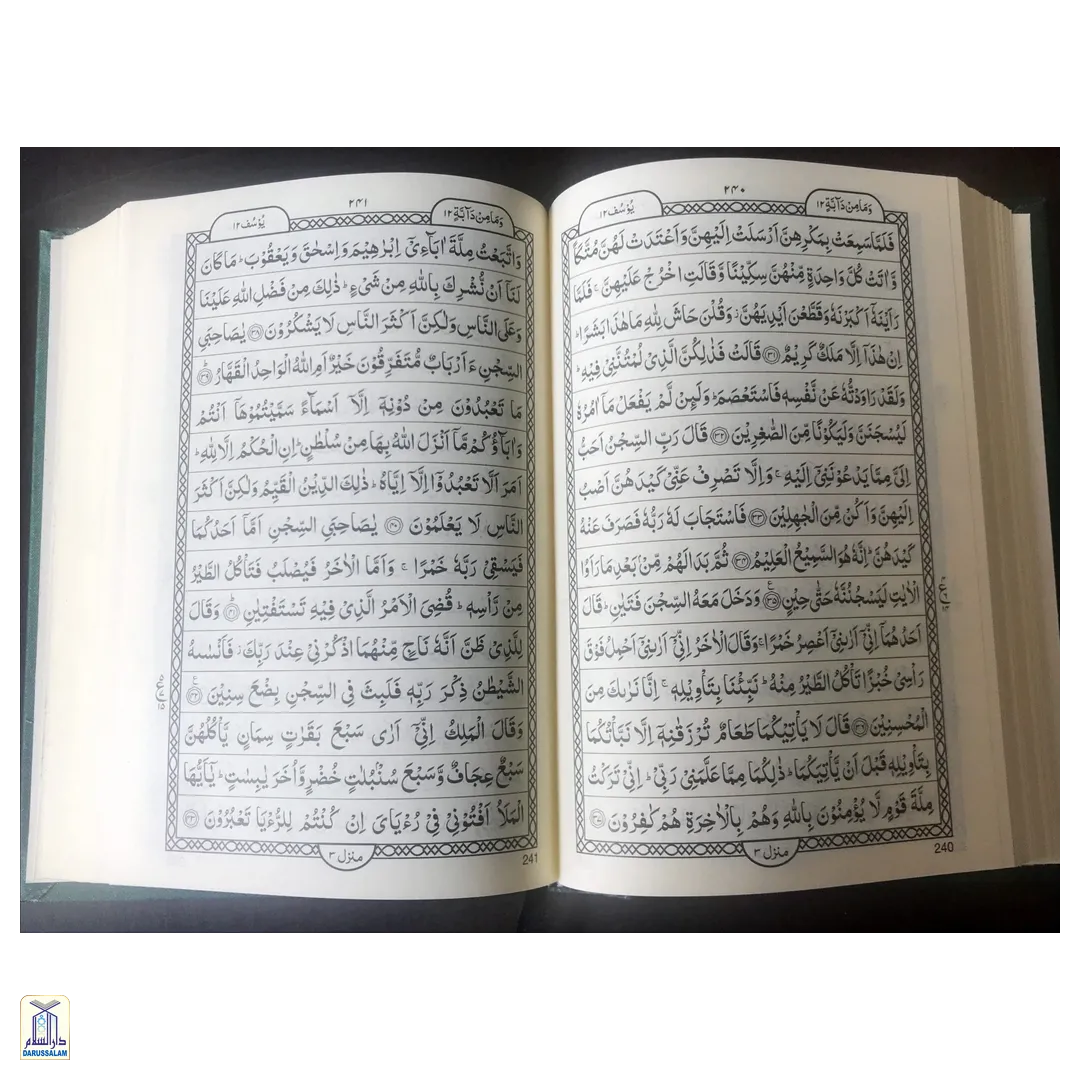 ۲۴۰
وَمَا مِنْ دَآبَّةٍ ۱۲
يُوْسُف ۱۲
فَلَمَّا سَمِعَتْ بِمَكْرِهِنَّ اَرْسَلَتْ اِلَيْهِنَّ وَاَعْتَدَتْ لَهُنَّ مُتَّكَاً
وَّاٰتَتْ كُلَّ وَاحِدَةٍ مِّنْهُنَّ سِكِّيْنًا وَّقَالَتِ اخْرُجْ عَلَيْهِنَّ ۚ فَلَمَّا
رَاَيْنَهٗٓ اَكْبَرْنَهٗ وَقَطَّعْنَ اَيْدِيَهُنَّ ۡ وَقُلْنَ حَاشَ لِلّٰهِ مَا هٰذَا بَشَرًا ؕ
اِنْ هٰذَآ اِلَّا مَلَكٌ كَرِيْمٌ ﴿۳۱﴾ قَالَتْ فَذٰلِكُنَّ الَّذِيْ لُمْتُنَّنِيْ فِيْهِ ؕ
وَلَقَدْ رَاوَدْتُّهٗ عَنْ نَّفْسِهٖ فَاسْتَعْصَمَ ؕ وَلَىِٕنْ لَّمْ يَفْعَلْ مَآ اٰمُرُهٗ
لَيُسْجَنَنَّ وَلَيَكُوْنًا مِّنَ الصّٰغِرِيْنَ ﴿۳۲﴾ قَالَ رَبِّ السِّجْنُ اَحَبُّ
اِلَيَّ مِمَّا يَدْعُوْنَنِيْٓ اِلَيْهِ ۚ وَاِلَّا تَصْرِفْ عَنِّيْ كَيْدَهُنَّ اَصْبُ
اِلَيْهِنَّ وَاَكُنْ مِّنَ الْجٰهِلِيْنَ ﴿۳۳﴾ فَاسْتَجَابَ لَهٗ رَبُّهٗ فَصَرَفَ عَنْهُ
كَيْدَهُنَّ ؕ اِنَّهٗ هُوَ السَّمِيْعُ الْعَلِيْمُ ﴿۳۴﴾ ثُمَّ بَدَا لَهُمْ مِّنْۢ بَعْدِ مَا رَاَوُا
الْاٰيٰتِ لَيَسْجُنُنَّهٗ حَتّٰى حِيْنٍ ﴿۳۵﴾ وَدَخَلَ مَعَهُ السِّجْنَ فَتَيٰنِ ؕ قَالَ
اَحَدُهُمَآ اِنِّيْٓ اَرٰىنِيْٓ اَعْصِرُ خَمْرًا ۚ وَقَالَ الْاٰخَرُ اِنِّيْٓ اَرٰىنِيْٓ اَحْمِلُ فَوْقَ
رَاْسِيْ خُبْزًا تَاْكُلُ الطَّيْرُ مِنْهُ ؕ نَبِّئْنَا بِتَاْوِيْلِهٖ ۚ اِنَّا نَرٰىكَ مِنَ
الْمُحْسِنِيْنَ ﴿۳۶﴾ قَالَ لَا يَاْتِيْكُمَا طَعَامٌ تُرْزَقٰنِهٖٓ اِلَّا نَبَّاْتُكُمَا
بِتَاْوِيْلِهٖ قَبْلَ اَنْ يَّاْتِيَكُمَا ؕ ذٰلِكُمَا مِمَّا عَلَّمَنِيْ رَبِّيْ ؕ اِنِّيْ تَرَكْتُ
مِلَّةَ قَوْمٍ لَّا يُؤْمِنُوْنَ بِاللّٰهِ وَهُمْ بِالْاٰخِرَةِ هُمْ كٰفِرُوْنَ ﴿۳۷﴾
منزل ۳
240
۲۴۱
وَمَا مِنْ دَآبَّةٍ ۱۲
يُوْسُف ۱۲
وَاتَّبَعْتُ مِلَّةَ اٰبَآءِيْٓ اِبْرٰهِيْمَ وَاِسْحٰقَ وَيَعْقُوْبَ ؕ مَا كَانَ
لَنَآ اَنْ نُّشْرِكَ بِاللّٰهِ مِنْ شَيْءٍ ؕ ذٰلِكَ مِنْ فَضْلِ اللّٰهِ عَلَيْنَا
وَعَلَى النَّاسِ وَلٰكِنَّ اَكْثَرَ النَّاسِ لَا يَشْكُرُوْنَ ﴿۳۸﴾ يٰصَاحِبَيِ
السِّجْنِ ءَاَرْبَابٌ مُّتَفَرِّقُوْنَ خَيْرٌ اَمِ اللّٰهُ الْوَاحِدُ الْقَهَّارُ ﴿۳۹﴾
مَا تَعْبُدُوْنَ مِنْ دُوْنِهٖٓ اِلَّآ اَسْمَآءً سَمَّيْتُمُوْهَآ اَنْتُمْ
وَاٰبَآؤُكُمْ مَّآ اَنْزَلَ اللّٰهُ بِهَا مِنْ سُلْطٰنٍ ؕ اِنِ الْحُكْمُ اِلَّا لِلّٰهِ ؕ
اَمَرَ اَلَّا تَعْبُدُوْٓا اِلَّآ اِيَّاهُ ؕ ذٰلِكَ الدِّيْنُ الْقَيِّمُ وَلٰكِنَّ اَكْثَرَ
النَّاسِ لَا يَعْلَمُوْنَ ﴿۴۰﴾ يٰصَاحِبَيِ السِّجْنِ اَمَّآ اَحَدُكُمَا
فَيَسْقِيْ رَبَّهٗ خَمْرًا ۚ وَاَمَّا الْاٰخَرُ فَيُصْلَبُ فَتَاْكُلُ الطَّيْرُ
مِنْ رَّاْسِهٖ ؕ قُضِيَ الْاَمْرُ الَّذِيْ فِيْهِ تَسْتَفْتِيٰنِ ﴿۴۱﴾ وَقَالَ
لِلَّذِيْ ظَنَّ اَنَّهٗ نَاجٍ مِّنْهُمَا اذْكُرْنِيْ عِنْدَ رَبِّكَ ۡ فَاَنْسٰىهُ
الشَّيْطٰنُ ذِكْرَ رَبِّهٖ فَلَبِثَ فِي السِّجْنِ بِضْعَ سِنِيْنَ ﴿۴۲﴾
وَقَالَ الْمَلِكُ اِنِّيْٓ اَرٰى سَبْعَ بَقَرٰتٍ سِمَانٍ يَّاْكُلُهُنَّ
سَبْعٌ عِجَافٌ وَّسَبْعَ سُنْۢبُلٰتٍ خُضْرٍ وَّاُخَرَ يٰبِسٰتٍ ؕ يٰٓاَيُّهَا
الْمَلَاُ اَفْتُوْنِيْ فِيْ رُءْيَايَ اِنْ كُنْتُمْ لِلرُّءْيَا تَعْبُرُوْنَ ﴿۴۳﴾
منزل ۳
241
دارالسلام
DARUSSALAM